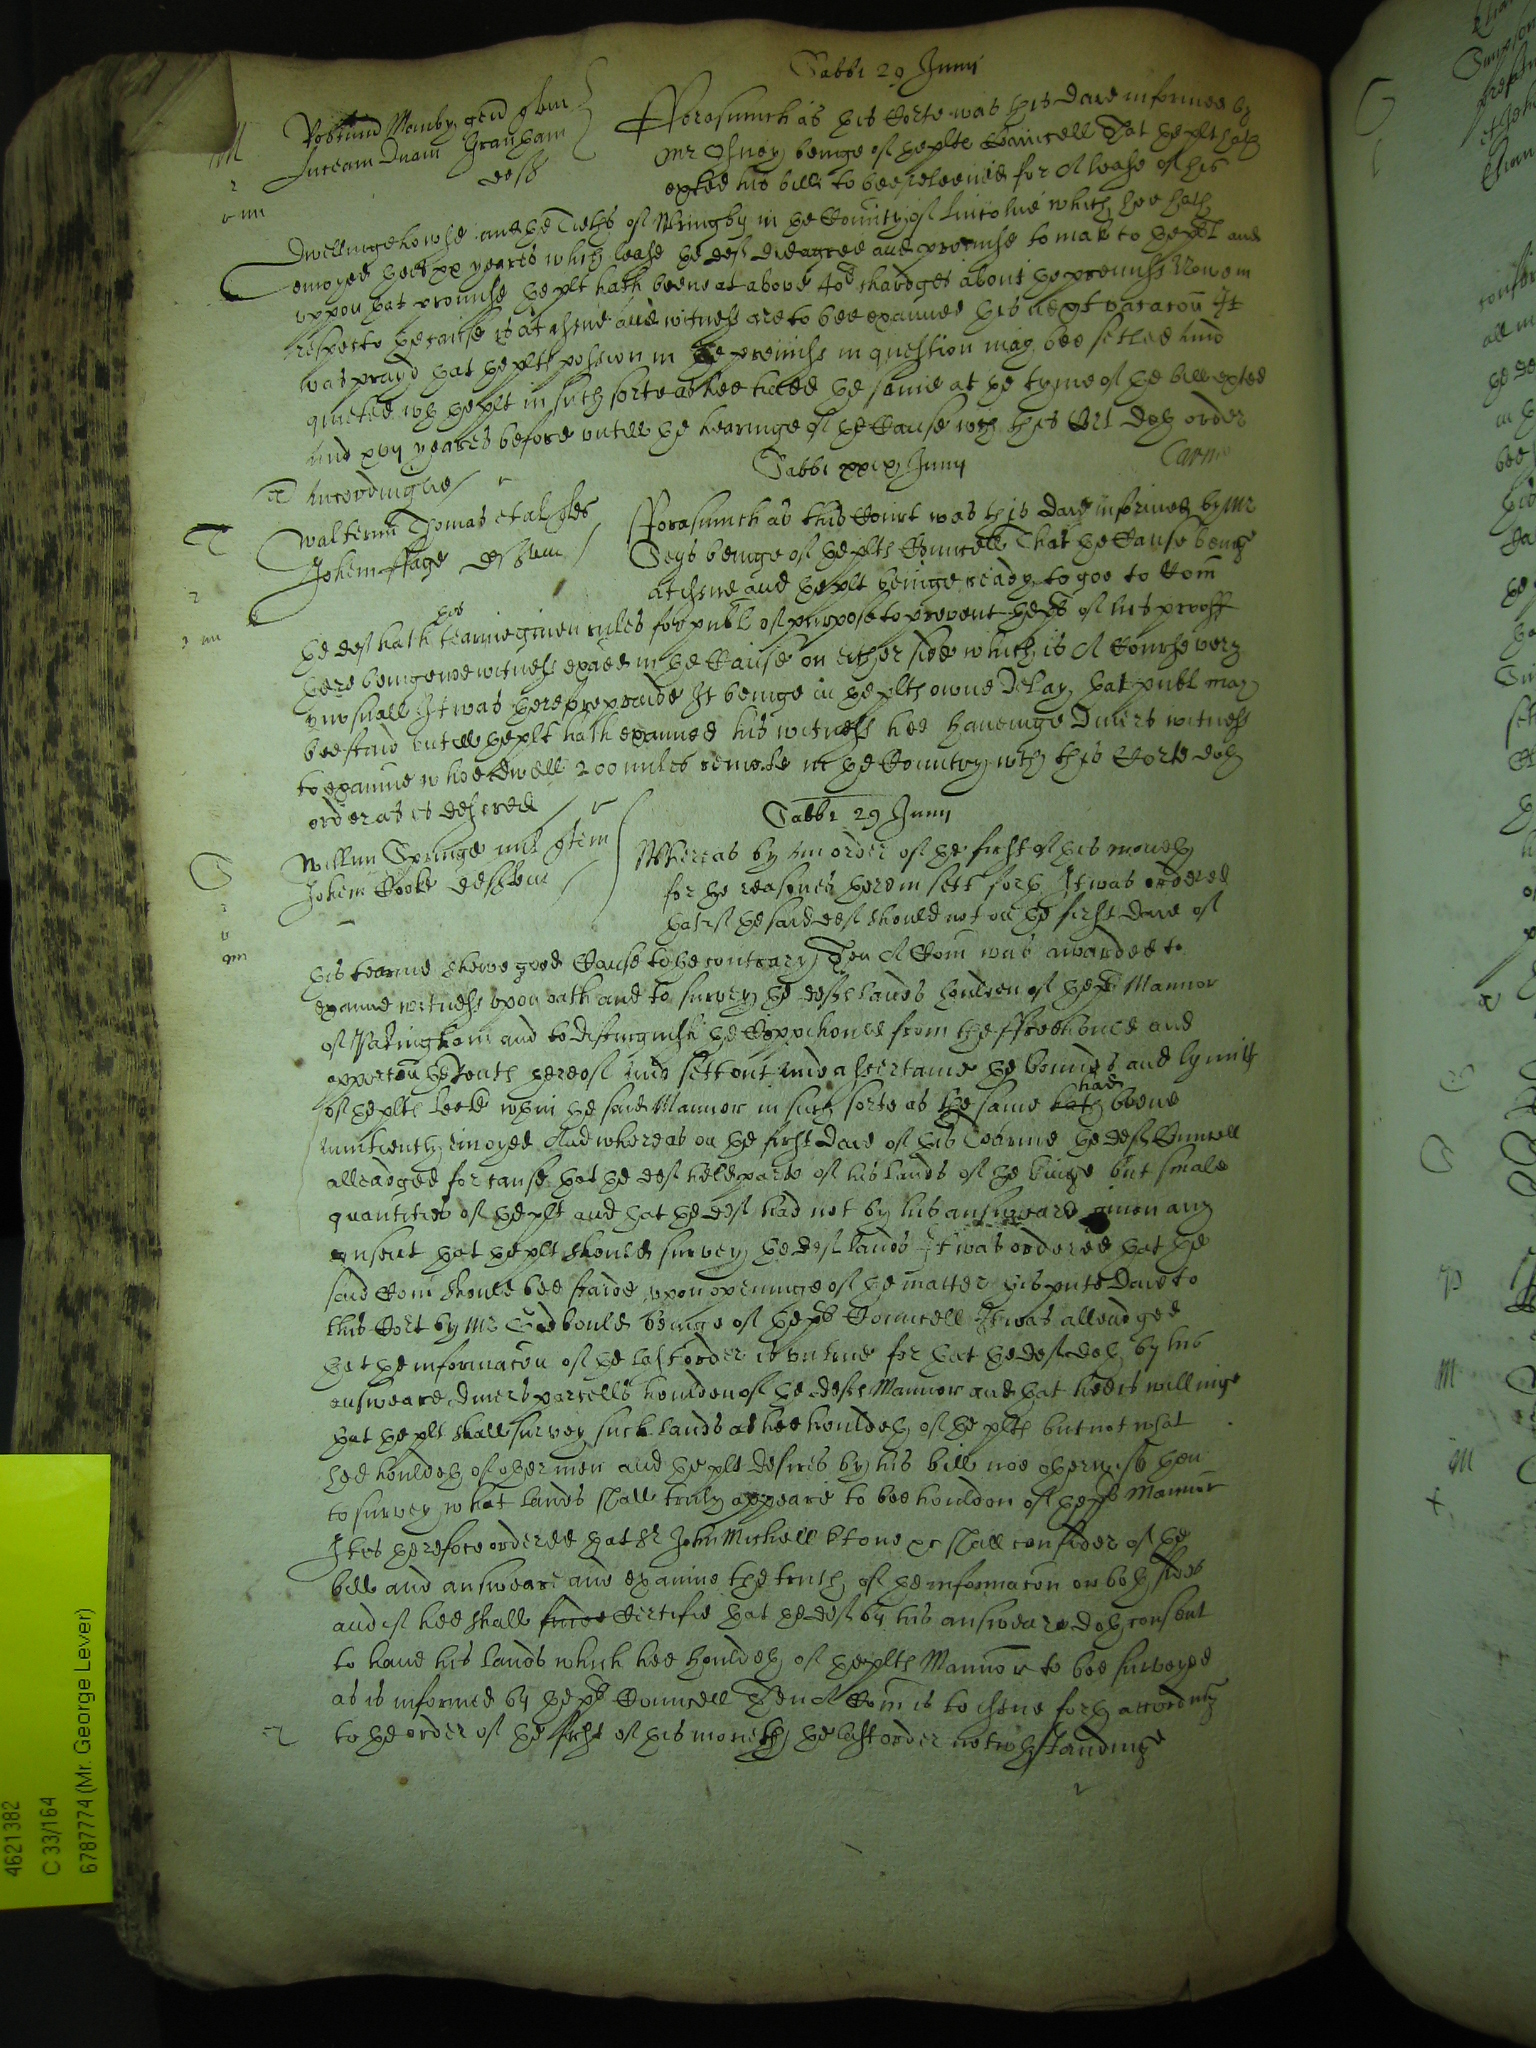 Sabbi 29 Junii
Rosemund Manby gen quem
Luceam Dnam Grantham
deff
Forasmuch as this Corte was this Daie informed by
Mr Osney beinge of the plts Councell That the plt hath
expted his bill to bee releeved for A lease of his
Dwellinge howse and the Tieths of Wringby in the County of Lincolne which hee hath
enioyed theis xx yeares which lease the def did agree and promise to make to the plt and
uppon that promise the plt hath beene at above 40 chardges about the premiss Nowe in
respecte the cause is at issue and witness are to bee exammed this next vacacon It
was prayd that the plts possion in the premiss in question may bee setled and
quieted wth the plt in such sorte as hee held the same at the tyme of the bill expted
And xvij yeares before untill the hearinge of the Cause wch this Crt doth order
Accordinglie
Sabbi xxix Junij
Walterum Thomas et al ples
Johem Page def
Forasmuch as this Court was this Daie informed by Mr
Seys beinge of the plts Councell That the Cause being
at issue and the plt beinge ready to goe to Com
the def hath this tearme given rules for publ of purpose to prevent the plt of his prooff
there beinge noe witness exaied in the Cause on either side which is A Course very
unusuall It was therefore praide It beinge in the plts owne Delay that publ may
bee staid untill the plt hath exammed his witness hee haveinge Divers witness
to examine whoe dwell 200 miles remote in the Country wch this Corte doth
order as is desired
Sabbi 29 Junij
Willm Springe mil quem
Johem Cooke def
Whereas by an order of the first of this moneth
for the reasones therein sett forth It was ordered
that if the said def should not on the first daie of
this tearme shewe good Cause to the contrary Then A Com was awarded to
examine witness upon oath and to survey the deffs lands houlden of the plts Mannor
of Pakingham and to distinguish the Coppihould from the Freehould and
apportion the Rents thereof And sett out and assertaine the bounds and lymitts
of the plts Leete wthin the said Mannor in such sorte as the same hath had beene
auntiently enioyed And whereas on the first Daie of this Tearme the defs Councell
alleadged for cause that the def held parte of his lands of the kinge but smale
quantities of the plt and that the def had not by his answeare given any
consent that the plt should survey the defs lands It was ordered that the
said Com should bee staide upon openinge of the matter this pnte Daie to
this Cort by Mr Godbould beinge of the plts Councell It was alleadged
that the informacon of the last order is untrue for that the def doth by his
answeare divers parcells houlden of the defs Mannor and that hee is willinge
that the plt shall survey such lands as hee houldeth of the plts but not what
hee houldeth of other men and the plt desires by his bill noe otherwise then
to survey what lands shall truly appeare to bee houlden of the plts Mannor
It is therefore ordered that Sr John Michell kt one &c shall consider of the
bill and answeare and examine the truth of the informacon on both sides
and if hee shall finde Certifie that the def by his answeare doth consent
to have his lands which hee houldeth of the plts Mannor to bee surveyed
as is informed by the plts Councell Then A Com is to issue forth according
to the order of the first of this moneth the last order notwthstandinge
4621382
C 33/164
6787774 (Mr. George Lever)